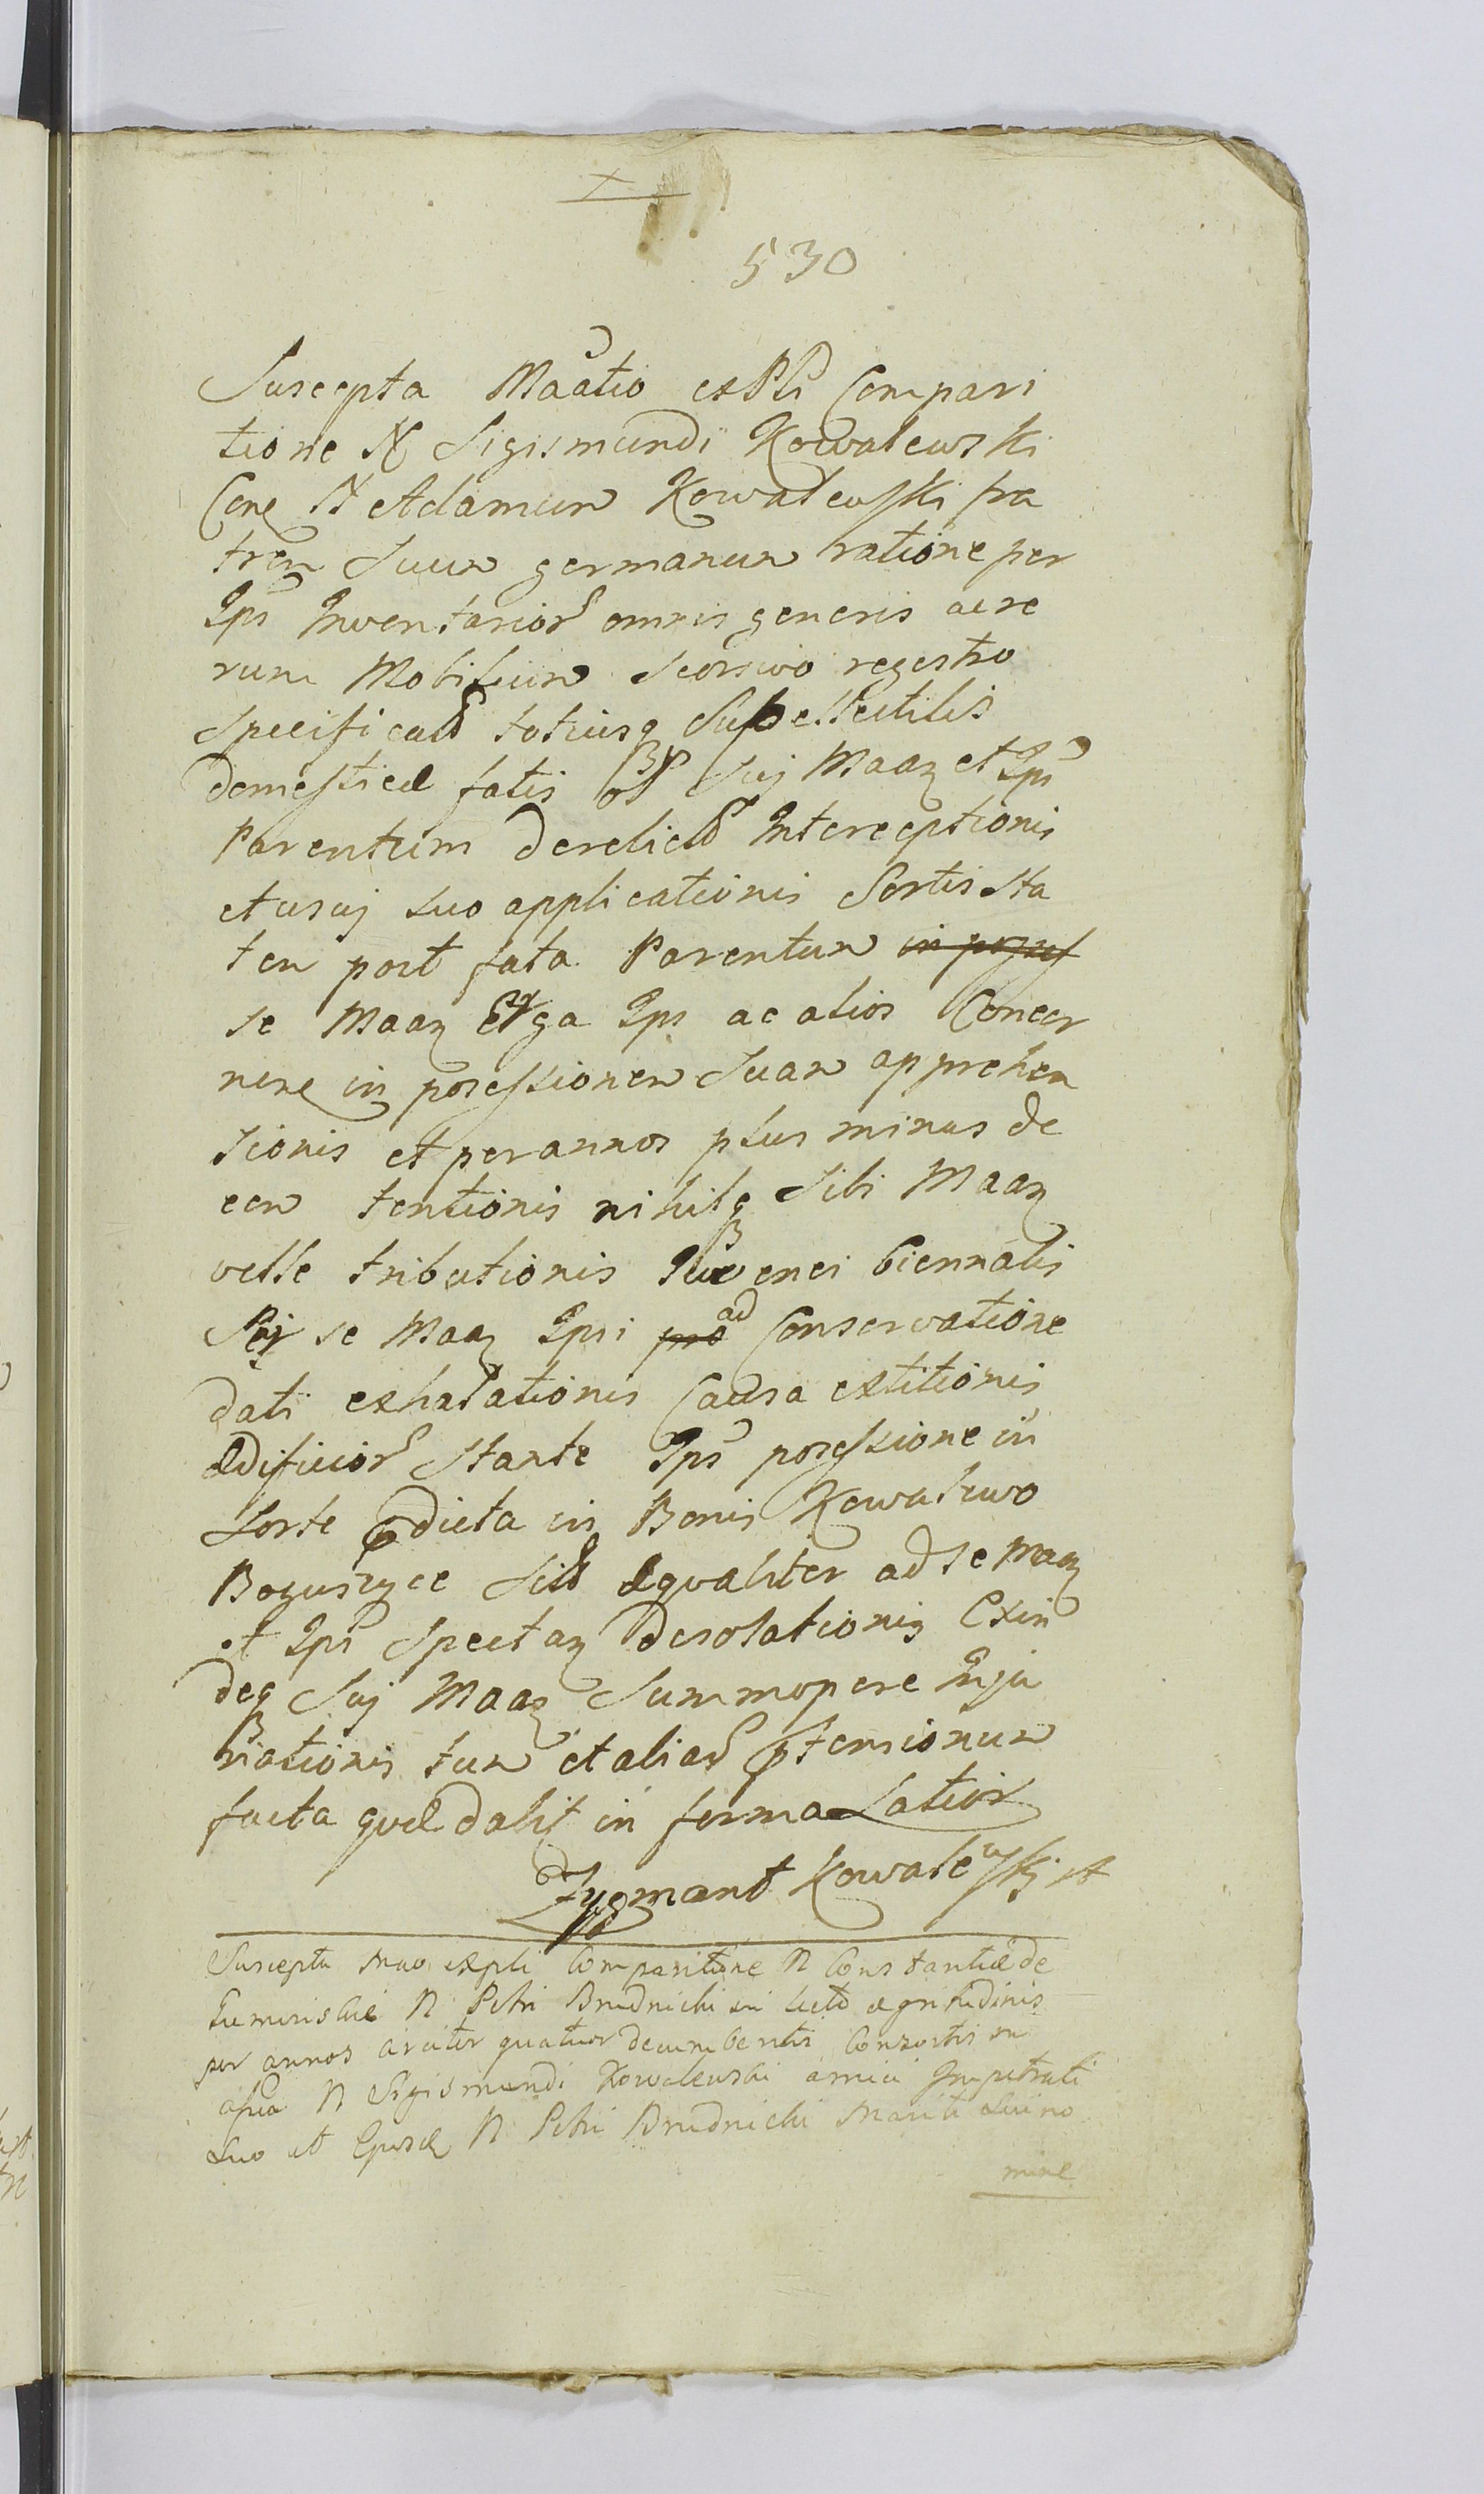 530
Suscepta Maãtio exPlĩ Compari
tione N Sigismundi Kowalewski
Cone N Adamum Kowalewski fra
trem Suum germanum ratione per
Ips Inventarior omnis generis ac re
rum Mobilium Seorsivo regestro
Specificat totiusq Supellectilis
domesticæ fatis olim Suj Maan et Ips
Parentum derelict Interceptionis
et usuj suo applicationis Sortis Sta
tem post fata Parentum in posses
se Maan Erga Ips ac alios Concer
nen in possessionem Suam apprehen
sionis et per annos plus minus de
cem tentionis nihilq Sibi Maan
velle tributionis Juvenci biennalis
Per se Maan Ipsi pro ad Conservatione
dati exhalationis Causa extitionis
Ædificior Stante Ips possessione in
Sorte prædicta in Bonis Kowalewo
Boguszyce Sit Æqualiter ad se Maan
et Ips Spectan Desolationis Exin
deq Suj Maan Summopere Inju
riationis tum et aliar prætensionum
facta quæ dabit in forma Latiori
Zygmant Kowalewskj
Suscepta Mao expli Comparitione N Constantiæ de
N Petri Brudnicki in lecto ægritudinis
per annos circiter quatuor decumbentis Consortis in
assa N Sigismundi Kowalewski amici Impetrati
Suo et Ejusd N Petri Brudnicki Mariti Sui no
mine